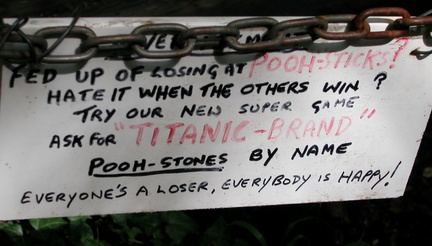 FED UP OF LOSING AT POOH-STICKS?
HATE IT WHEN THE OTHERS WIN?
TRY OUR NEW SUPER GAME
ASK FOR "TITANIC-BRAND"
POOH-STONES BY NAME
EVERYONE'S A LOSER, EVERYBODY IS HAPPY!